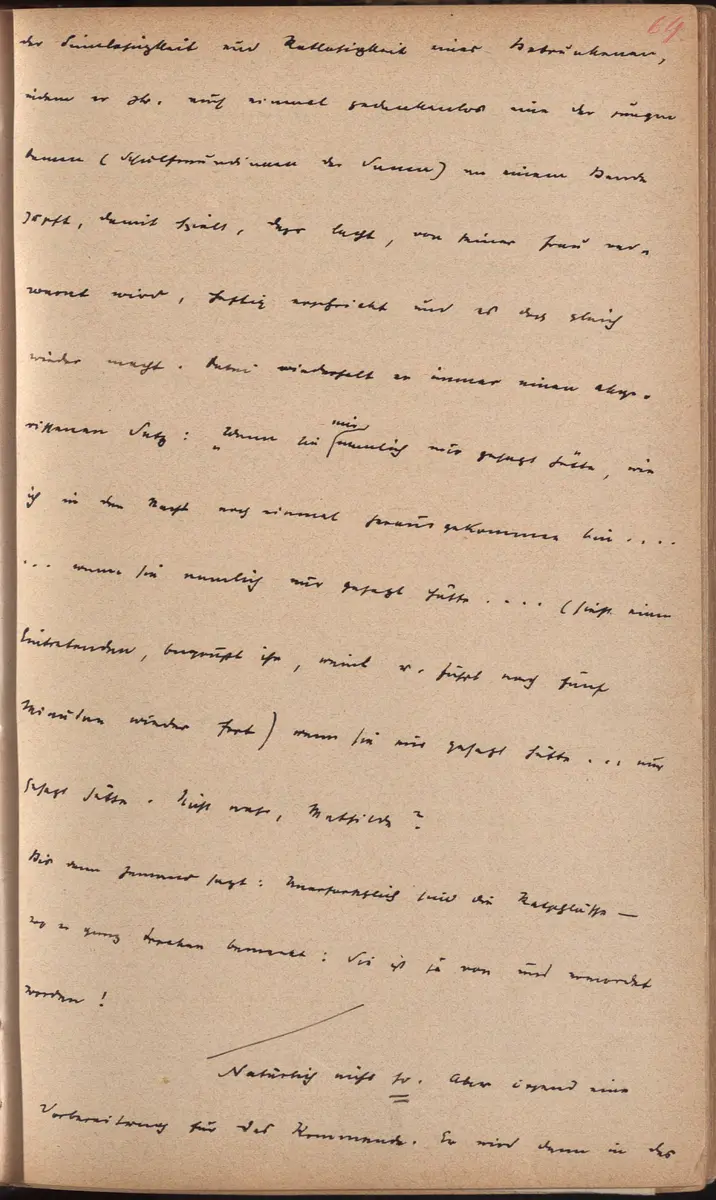 64
der Sinnlosigkeit und Ratlosigkeit eines Betrunkenen,
indem er zw. auf einmal gedankenlos eine der jungen
Damen (Schulfreundinnen der Susanna) an einem Bande
zupft, damit spielt, dazu lacht, von seiner Frau ver-
warnt wird, heftig erschrickt und es doch gleich
wieder macht. Dabei wiederholt er immer einen abge-
rissenen Satz: „Wenn sie mir nämlich nur gesagt hätte, wie
ich in der Nacht noch einmal herausgekommen bin ....
... wenn sie nämlich nur gesagt hätte .... (sieht einen
Eintretenden, begrüßt ihn, weint u. fährt nach fünf
Minuten wieder fort) wenn sie nur gesagt hätte ... nur
gesagt hätte. Nicht wahr, Mathilde?
Bis dann jemand sagt: Unerforschlich sind die Ratschlüsse —
wo er ganz trocken bemerkt: Sie ist ja von uns ermordet
worden!
Natürlich nicht so. Aber irgend eine
Vorbereitung für das Kommende. Er wird dann in das